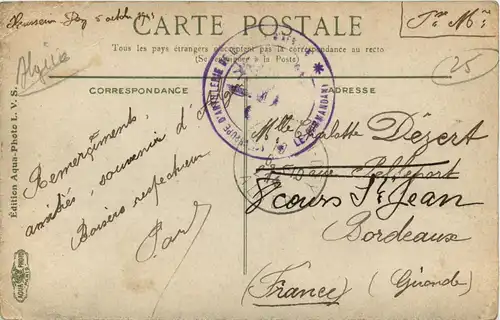 Hussein Dey 5 octob 1915
CARTE POSTALE
Tous les pays étrangers n'acceptent pas la correspondance au recto
(Se renseigner à la Poste)
Algérie
25
CORRESPONDANCE
ADRESSE
GROUPE D'ARTILLERIE DE
LE COMMANDANT
Remerciments,
amitiés, souvenir d'
Baisers respectueux
Paul
Mlle Charlotte Dézert
rue Pellepart
cours St Jean
Bordeaux
(France) (Gironde)
Édition Aqua-Photo L. V. S.
AQUA PHOTO
PARIS